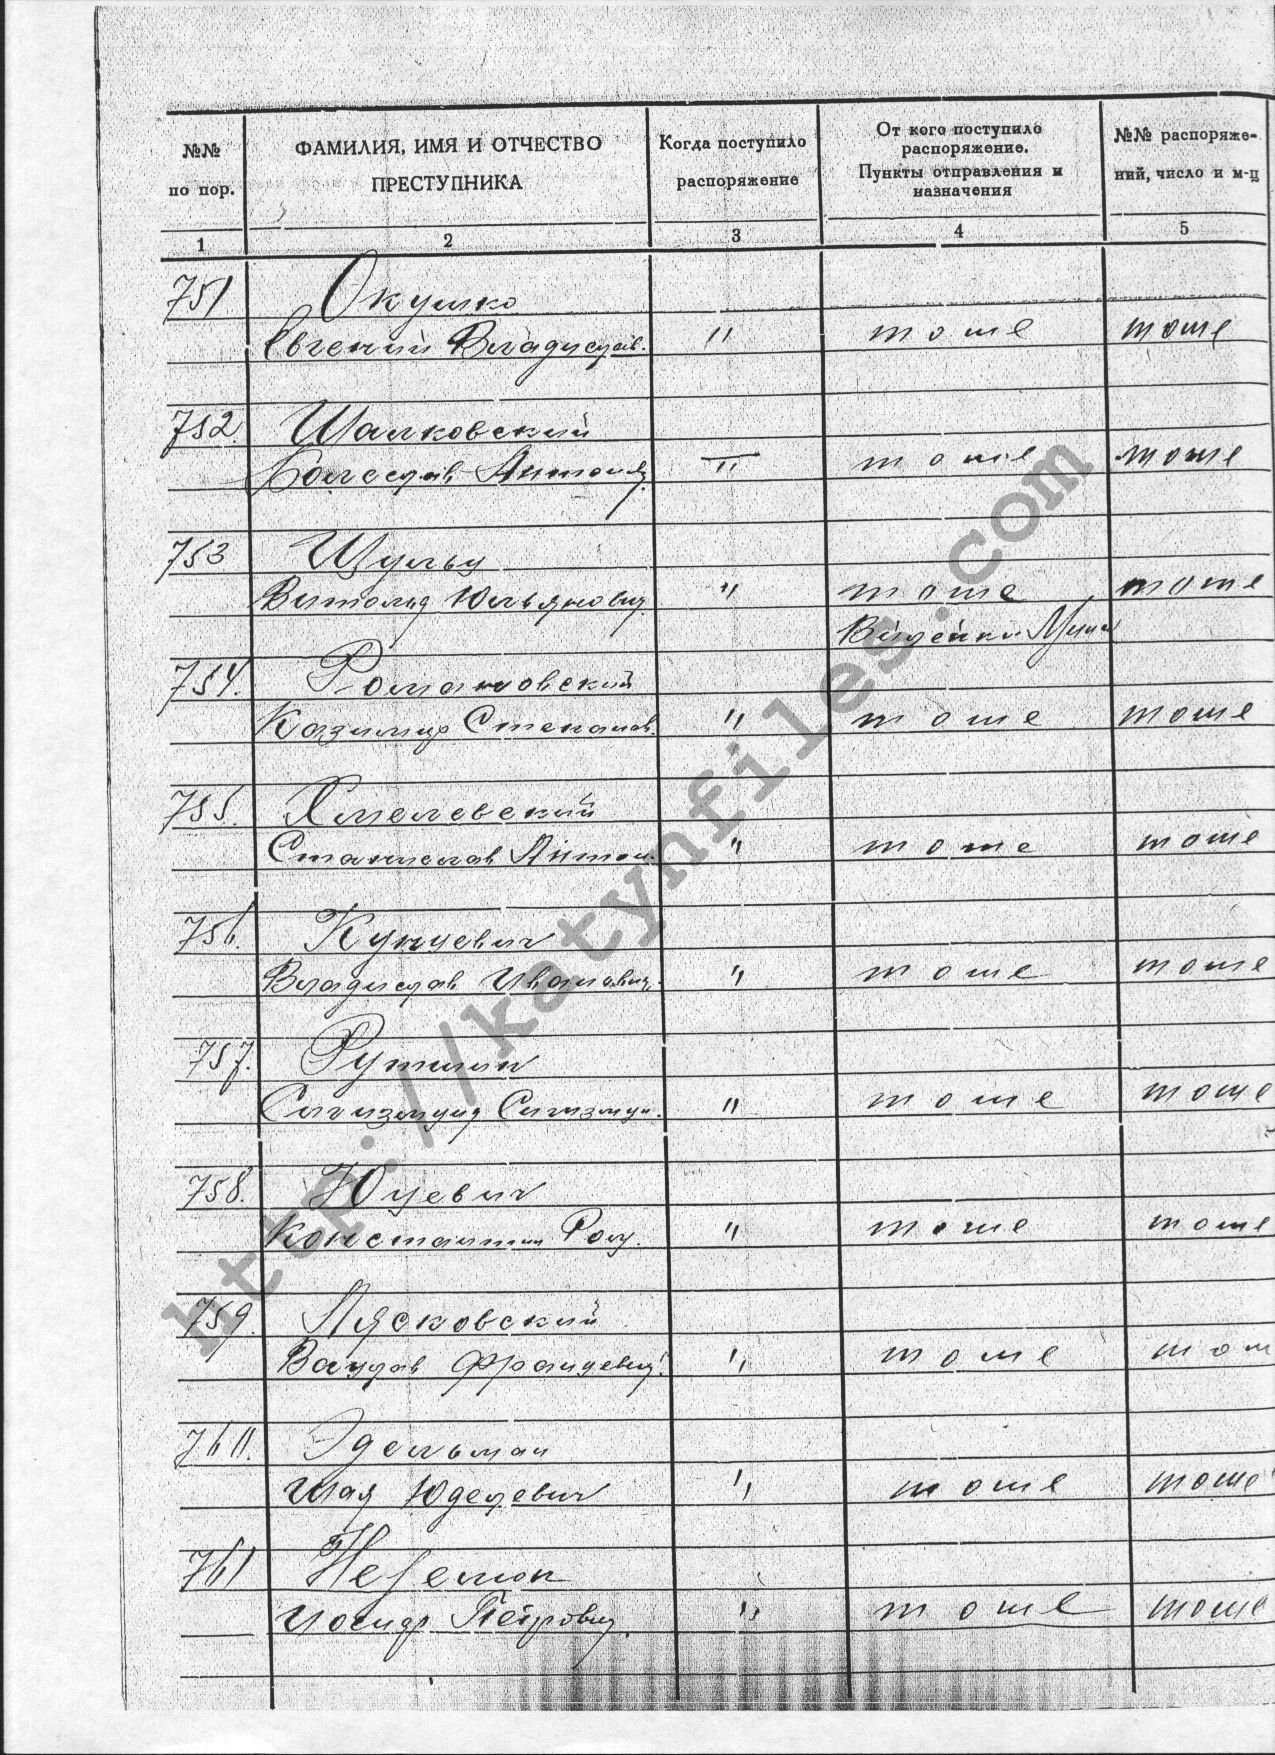 №№
по пор.
ФАМИЛИЯ, ИМЯ И ОТЧЕСТВО
ПРЕСТУПНИКА
Когда поступило
распоряжение
От кого поступило
распоряжение.
Пункты отправления и
назначения
№№ распоряже-
ний, число и м-ц
1 2 3 4 5
751 Окушко
Евгений Владислав. " тоже тоже
752. Шалковский
Болеслав Антонов. " тоже тоже
753 Шульц
Витольд Юльянович " тоже тоже
Вилейки Минс
754. Романовский
Казимир Степанов. " тоже тоже
755. Хмелевский
Станислав Антон. " тоже тоже
756. Кунцевич
Владислав Иванович. " тоже тоже
757.
Сигизмунд Сигизмун. " тоже тоже
758. Юцевич
Константин " тоже тоже
759. Лясковский
Вацлав Францевич. " тоже тож
760. Эдельман
Шая Юделевич " тоже тоже
761
Иосиф Петрович. " тоже тоже
http://katynfiles.com